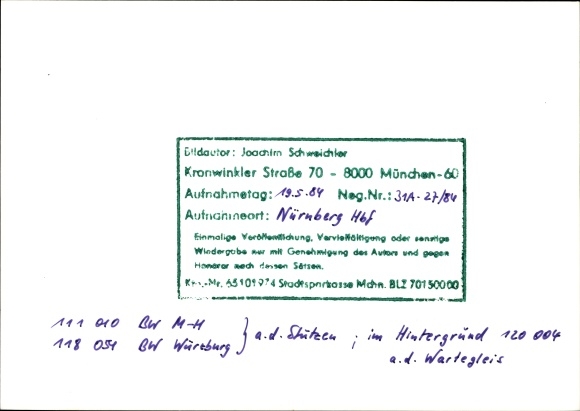 Bildautor: Joachim Schweichler
Kronwinkler Straße 70 - 8000 München-60
Aufnahmetag: 19.5.84 Neg.Nr.: 31A-27/84
Aufnahmeort: Nürnberg Hbf
Einmalige Veröffentlichung, Vervielfältigung oder sonstige
Wiedergabe nur mit Genehmigung des Autors und gegen
Honorar nach dessen Sätzen.
Kto.-Nr. 65101974 Stadtsparkasse Mchn. BLZ 70150000
111 010 BW M-H
118 051 BW Würzburg } a.d. Stützen ; im Hintergrund 120 004
a.d. Wartegleis